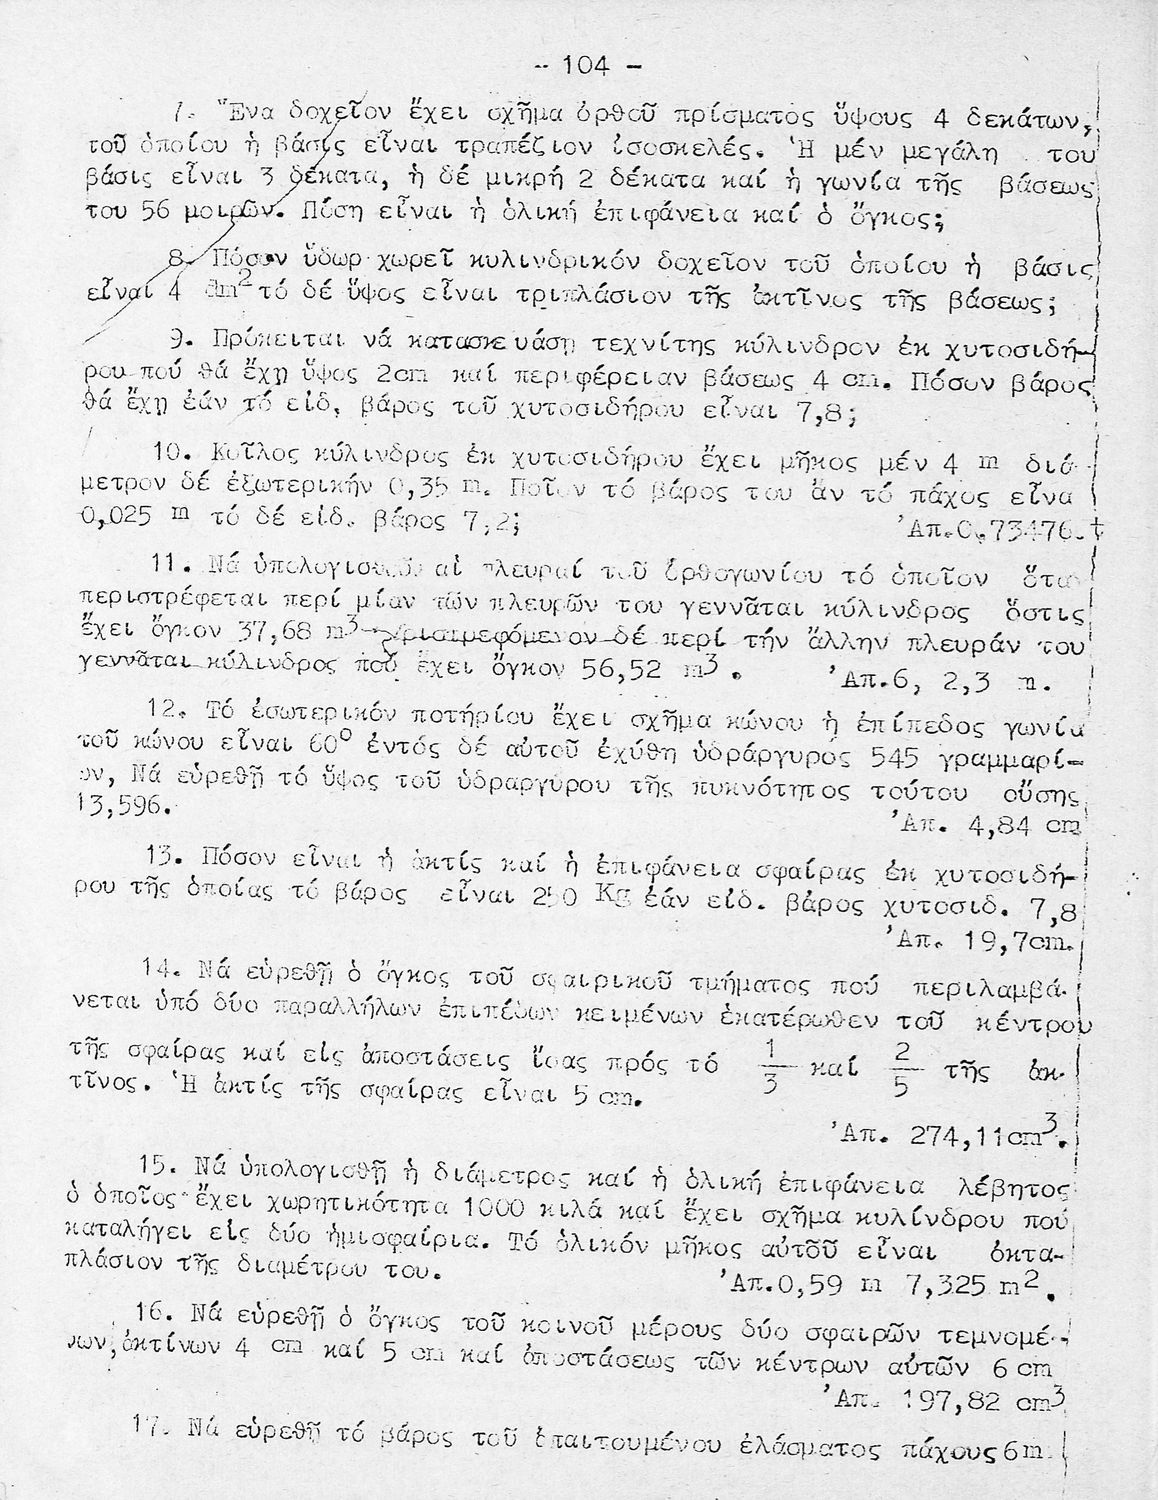 - 104 -
7. Ἕνα δοχεῖον ἔχει σχῆμα ὀρθοῦ πρίσματος ὕψους 4 δεκάτων,
τοῦ ὁποίου ἡ βάσις εἶναι τραπέζιον ἰσοσκελές. Ἡ μέν μεγάλη του
βάσις εἶναι 3 δέκατα, ἡ δέ μικρή 2 δέκατα καί ἡ γωνία τῆς βάσεως
του 56 μοιρῶν. Πόση εἶναι ἡ ὁλική ἐπιφάνεια καί ὁ ὄγκος;
8. Πόσον ὕδωρ χωρεῖ κυλινδρικόν δοχεῖον τοῦ ὁποίου ἡ βάσις
εἶναι 4 dm² τό δέ ὕψος εἶναι τριπλάσιον τῆς ἀκτῖνος τῆς βάσεως;
9. Πρόκειται νά κατασκευάση τεχνίτης κύλινδρον ἐκ χυτοσιδή-
ρου πού θά ἔχῃ ὕψος 2cm καί περιφέρειαν βάσεως 4 cm. Πόσον βάρος
θά ἔχῃ ἐάν τό εἰδ. βάρος τοῦ χυτοσιδήρου εἶναι 7,8;
10. Κοῖλος κύλινδρος ἐκ χυτοσιδήρου ἔχει μῆκος μέν 4 m διά-
μετρον δέ ἐξωτερικήν 0,35 m. Ποῖον τό βάρος του ἄν τό πάχος εἶνα
0,025 m τό δέ εἰδ. βάρος 7,2; Ἀπ.0,73476.t
11. Νά ὑπολογισθοῦν αἱ πλευραί τοῦ ὀρθογωνίου τό ὁποῖον ὅτα
περιστρέφεται περί μίαν τῶν πλευρῶν του γεννᾶται κύλινδρος ὅστις
ἔχει ὄγκον 37,68 m³ δέ περί τήν ἄλλην πλευράν του
γεννᾶται κύλινδρος πού ἔχει ὄγκον 56,52 m³. Ἀπ.6, 2,3 m.
12. Τό ἐσωτερικόν ποτήρίου ἔχει σχῆμα κώνου ἡ ἐπίπεδος γωνία
τοῦ κώνου εἶναι 60° ἐντός δέ αὐτοῦ ἐχύθη ὑδράργυρος 545 γραμμαρί-
ων, Νά εὑρεθῇ τό ὕψος τοῦ ὑδραργύρου τῆς πυκνότητος τούτου οὔσης
13,596. Ἀπ. 4,84 cm
13. Πόσον εἶναι ἡ ἀκτίς καί ἡ ἐπιφάνεια σφαίρας ἐκ χυτοσιδή-
ρου τῆς ὁποίας τό βάρος εἶναι 250 Kg ἐάν εἰδ. βάρος χυτοσιδ. 7,8
Ἀπ. 19,7cm.
14. Νά εὑρεθῇ ὁ ὄγκος τοῦ σφαιρικοῦ τμήματος πού περιλαμβά-
νεται ὑπό δύο παραλλήλων ἐπιπέδων κειμένων ἑκατέρωθεν τοῦ κέντρου
τῆς σφαίρας καί εἰς ἀποστάσεις ἴσας πρός τό 1/3 καί 2/5 τῆς ἀκ-
τῖνος. Ἡ ἀκτίς τῆς σφαίρας εἶναι 5 cm.
Ἀπ. 274,11cm³.
15. Νά ὑπολογισθῇ ἡ διάμετρος καί ἡ ὁλική ἐπιφάνεια λέβητος
ὁ ὁποῖος ἔχει χωρητικότητα 1000 κιλά καί ἔχει σχῆμα κυλίνδρου πού
καταλήγει εἰς δύο ἡμισφαίρια. Τό ὁλικόν μῆκος αὐτοῦ εἶναι ὀκτα-
πλάσιον τῆς διαμέτρου του. Ἀπ.0,59 m 7,325 m².
16. Νά εὑρεθῇ ὁ ὄγκος τοῦ κοινοῦ μέρους δύο σφαιρῶν τεμνομέ-
νων, ἀκτίνων 4 cm καί 5 cm καί ἀποστάσεως τῶν κέντρων αὐτῶν 6 cm
Ἀπ. 197,82 cm³
17. Νά εὑρεθῇ τό βάρος τοῦ ἀπαιτουμένου ἐλάσματος πάχους 6m